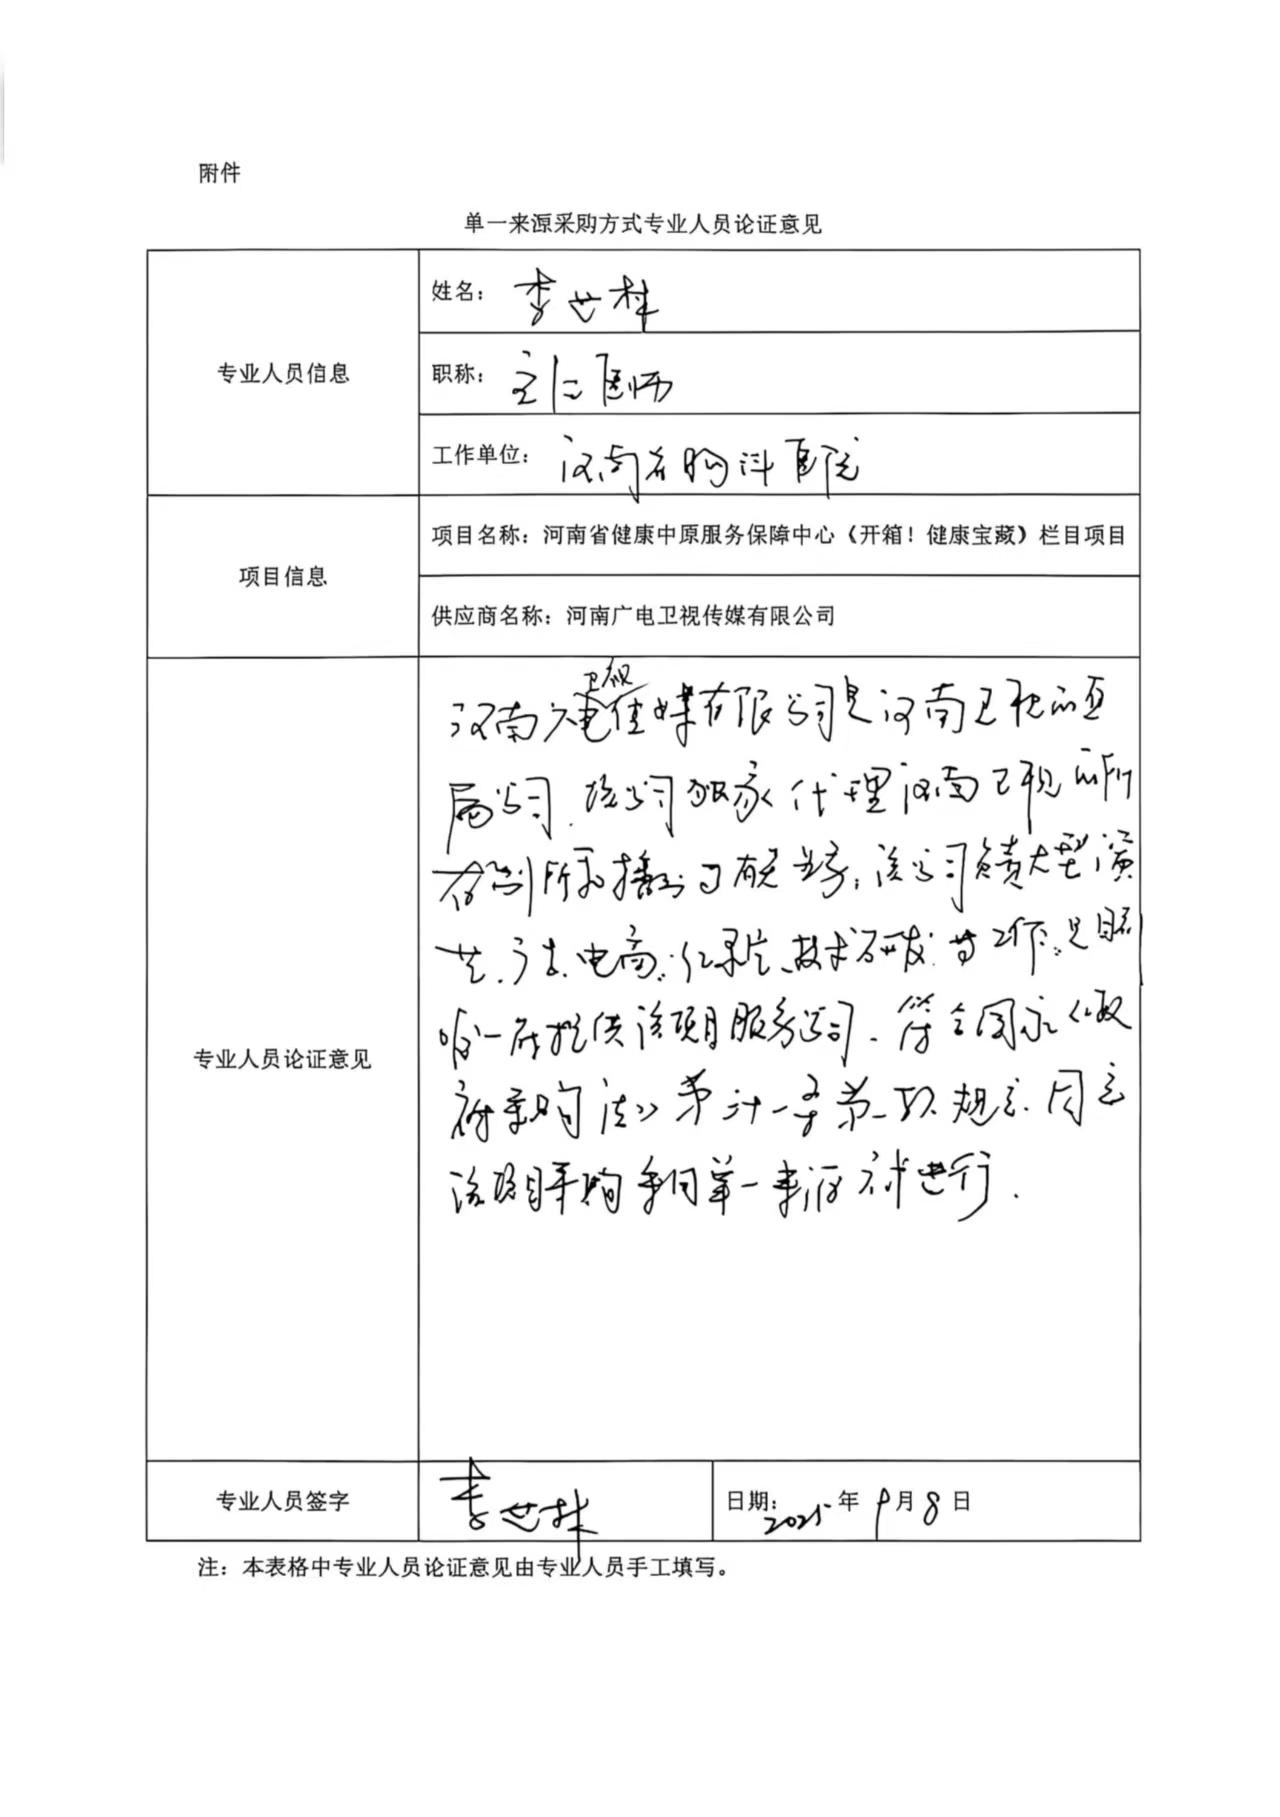 附件
单一来源采购方式专业人员论证意见
专业人员信息
姓名：李世林
职称：主任医师
工作单位：河南省胸科医院
项目信息
项目名称：河南省健康中原服务保障中心《开箱！健康宝藏》栏目项目
供应商名称：河南广电卫视传媒有限公司
专业人员论证意见
河南广电卫视传媒有限公司是河南卫视的直
属公司．该公司独家代理河南卫视的所
有 所有播出 有关业务；该公司负责大型演
艺、广告、电商、纪录片、技术研发等工作．是目前
唯一能提供该项目服务公司．符合国家《政
府采购法》第三十一条第一款规定．同意
该项目采购采用单一来源方式进行．
专业人员签字
李世林
日期：2025年9月8日
注：本表格中专业人员论证意见由专业人员手工填写。